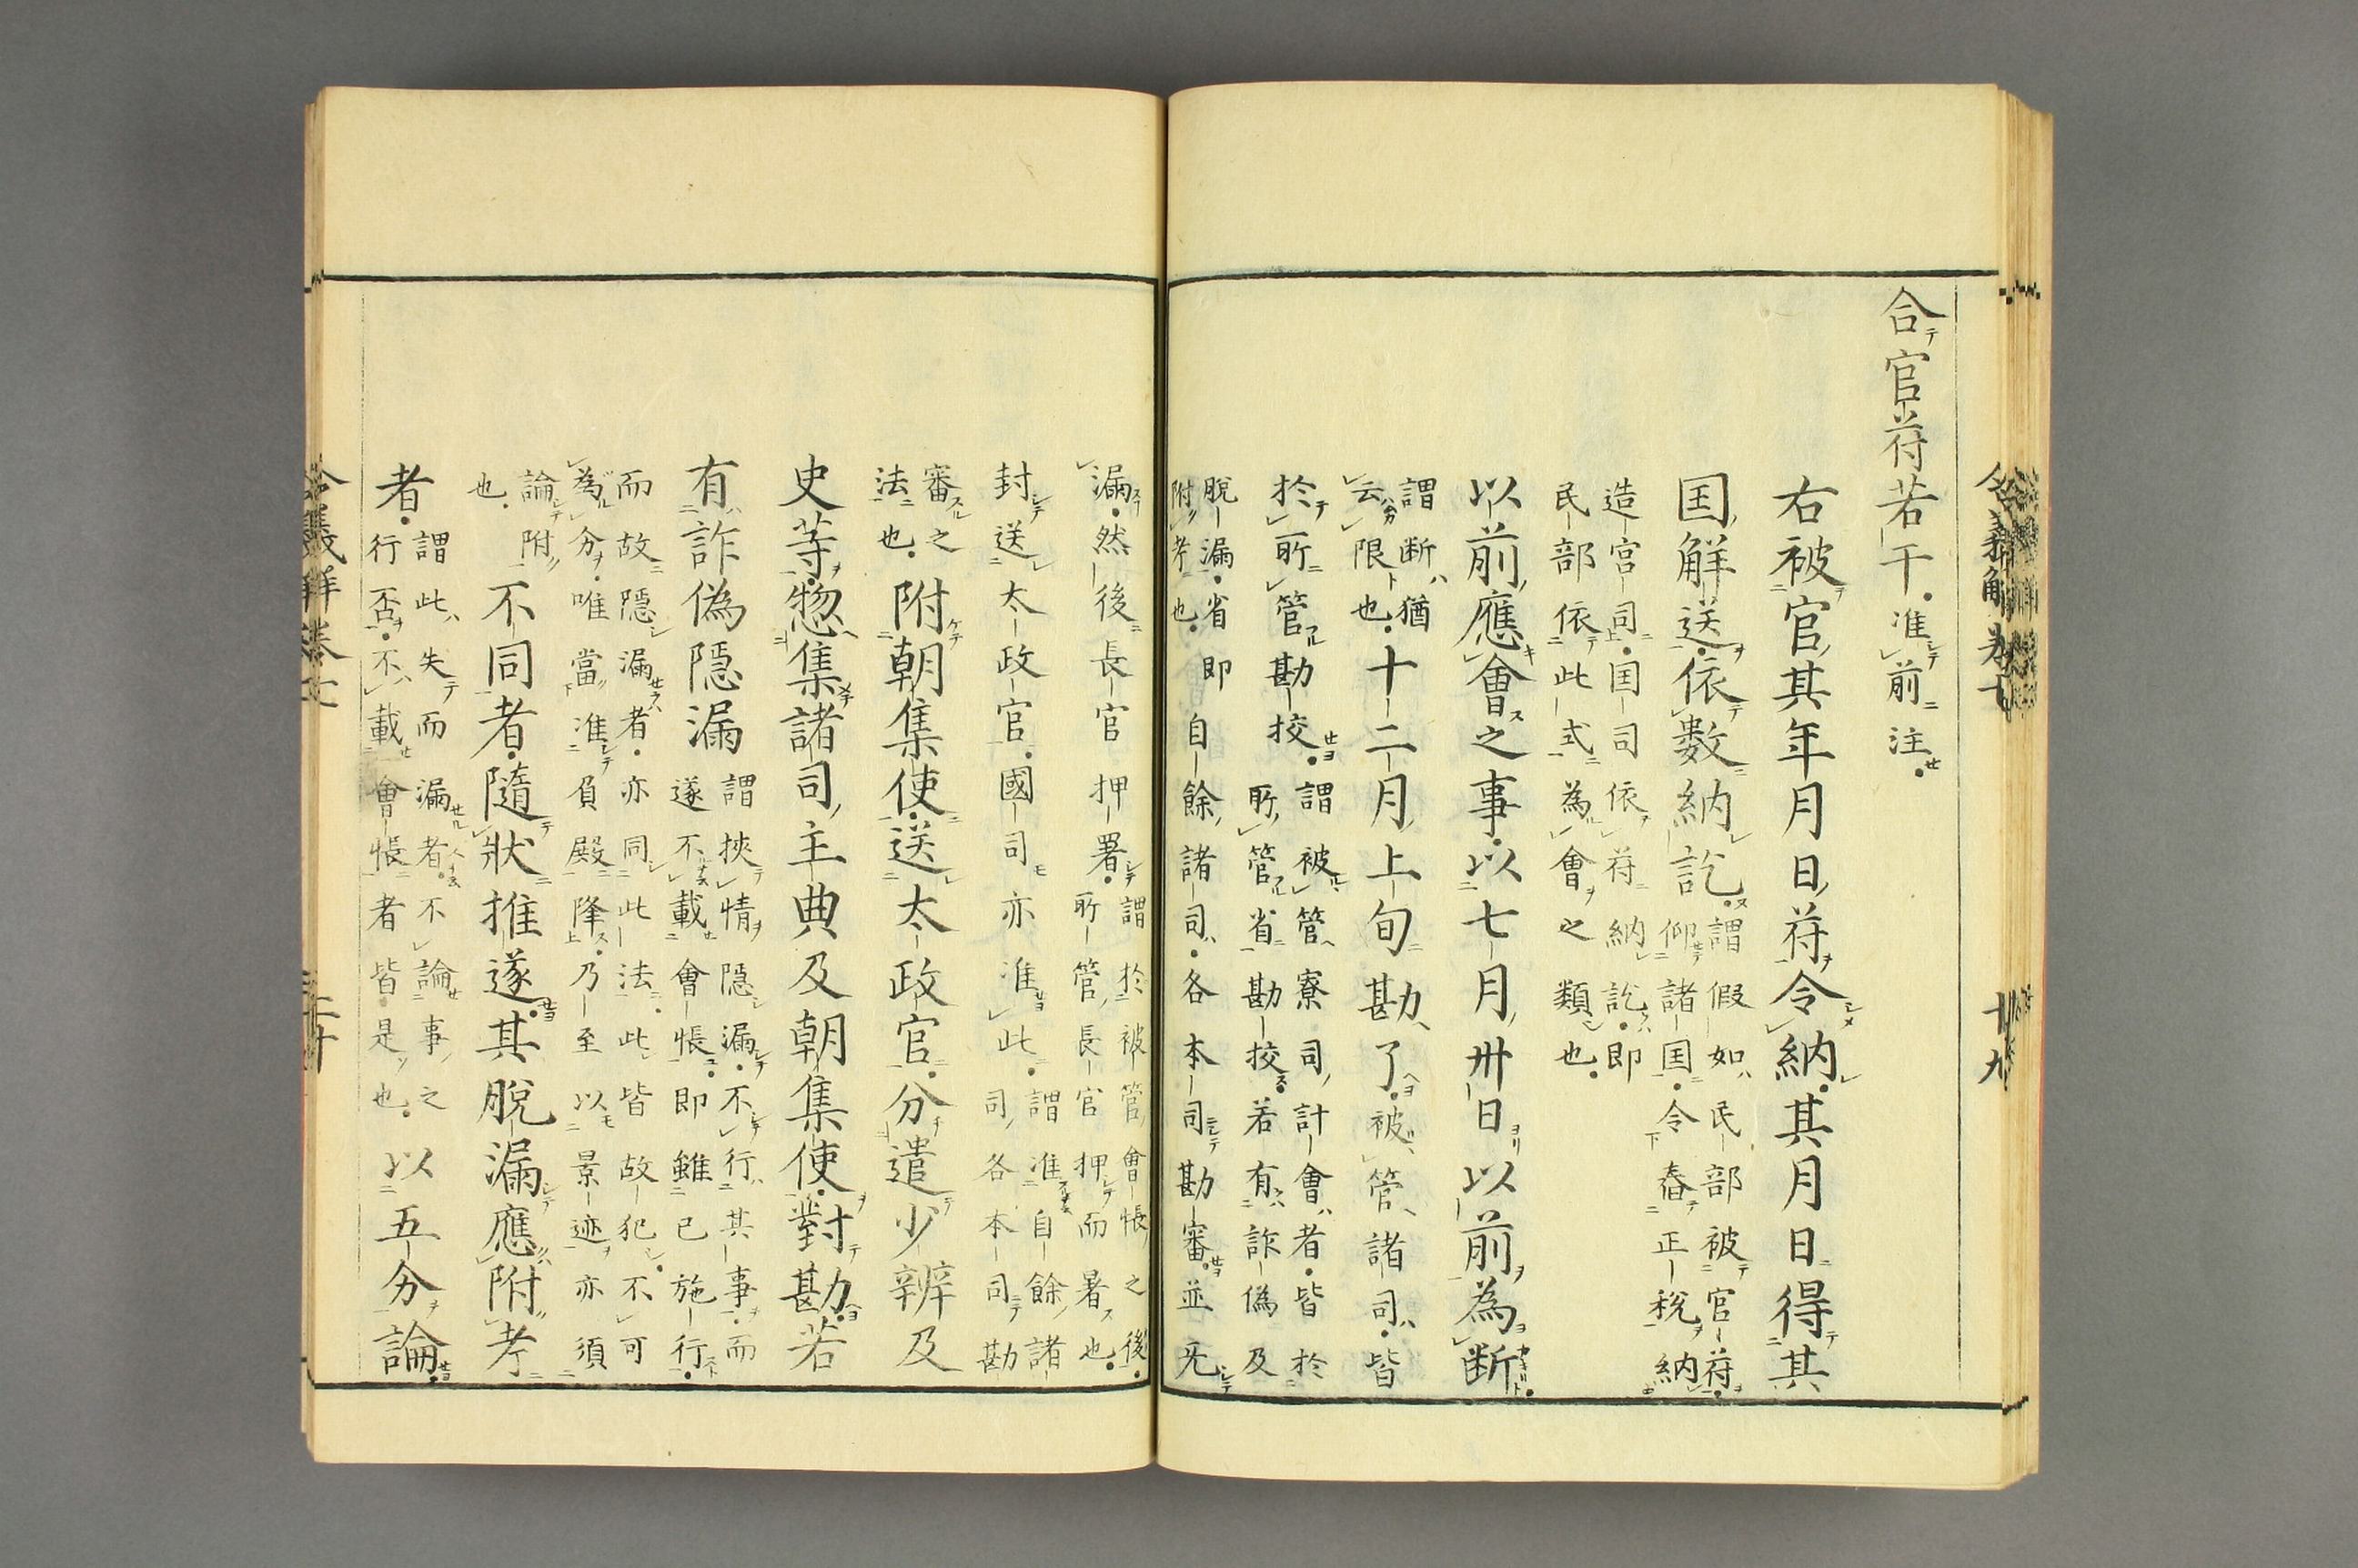 合官苻若干准前注
右被官其年月日苻令納其月日得其
国解送依数納訖謂假如民部被官苻
仰諸国令舂正税納
造宮司国司依苻納訖即
民部依此式為會之類也
以前應會之事以七月卅日以前為断
謂断猶
云限也十二月上旬勘了被管諸司皆
於所管勘挍謂被管寮司計會者皆於
所管省勘挍若有詐偽及
脱漏省即
附考也自餘諸司各本司勘審並无
漏然後長官押署謂於被管會帳之後
所管長官押而署也
封送太政官國司亦准此謂准自餘諸
司各本司勘
審之
法也附朝集使送太政官分遣少辨及
史等惣集諸司主典及朝集使對勘若
有詐偽隠漏謂挾情隠漏不行其事而
遂不載會帳即雖已施行
而故隠漏者亦同此法此皆故犯不可
為分唯當准負殿降乃至以景迹亦須
論附
也不同者隨狀推逐其脱漏應附考
者謂此失而漏者不論事之
行否不載會帳者皆是也以五分論